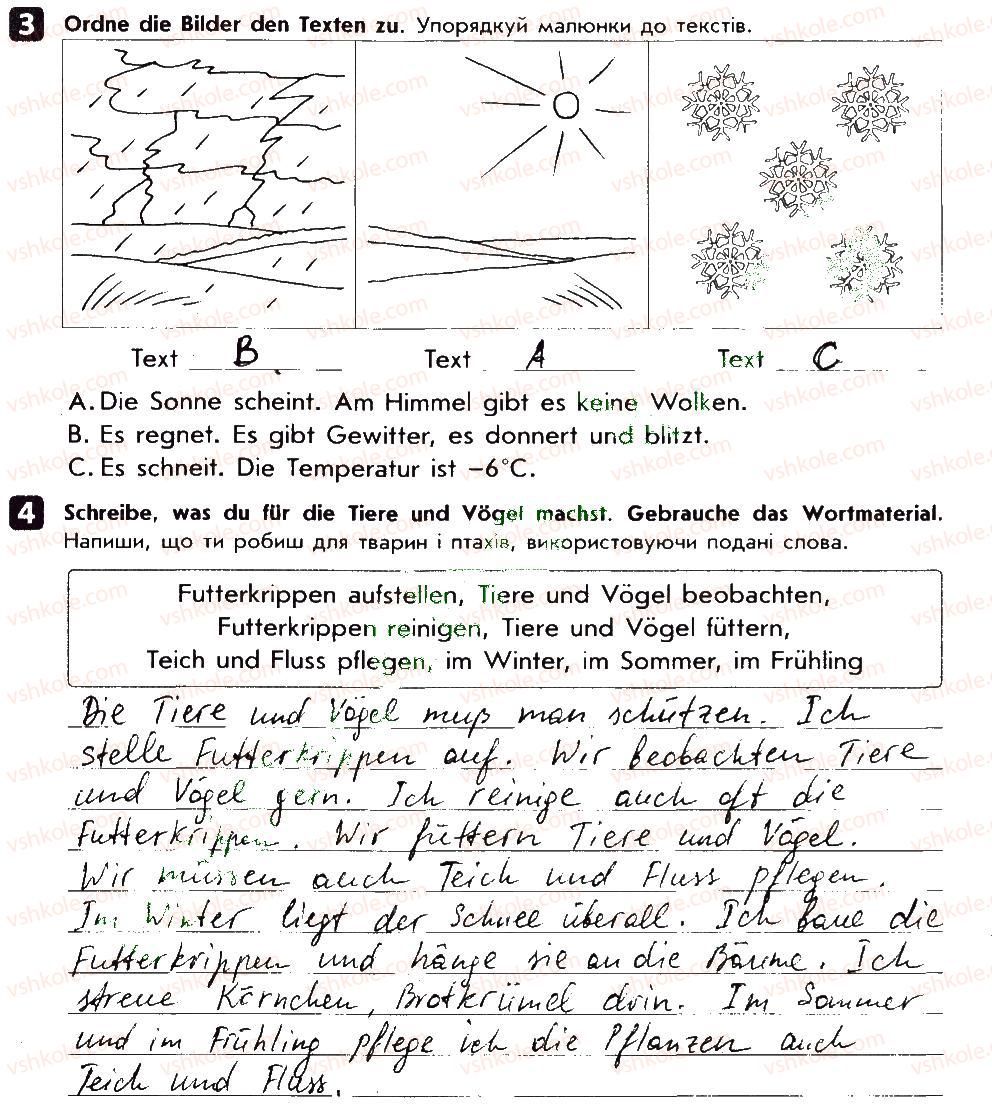 3 Ordne die Bilder den Texten zu. Упорядкуй малюнки до текстів.
Text B Text A Text C
A. Die Sonne scheint. Am Himmel gibt es keine Wolken.
B. Es regnet. Es gibt Gewitter, es donnert und blitzt.
C. Es schneit. Die Temperatur ist –6°C.
4 Schreibe, was du für die Tiere und Vögel machst. Gebrauche das Wortmaterial.
Напиши, що ти робиш для тварин і птахів, використовуючи подані слова.
Futterkrippen aufstellen, Tiere und Vögel beobachten,
Futterkrippen reinigen, Tiere und Vögel füttern,
Teich und Fluss pflegen, im Winter, im Sommer, im Frühling
Die Tiere und Vögel muß man schützen. Ich
stelle Futterkrippen auf. Wir beobachten Tiere
und Vögel gern. Ich reinige auch oft die
Futterkrippen. Wir füttern Tiere und Vögel.
Wir müssen auch Teich und Fluss pflegen.
Im Winter liegt der Schnee überall. Ich baue die
Futterkrippen und hänge sie an die Bäume. Ich
streue Körnchen, Brotkrümel drin. Im Sommer
und im Frühling pflege ich die Pflanzen auch
Teich und Fluss.
vshkole.com